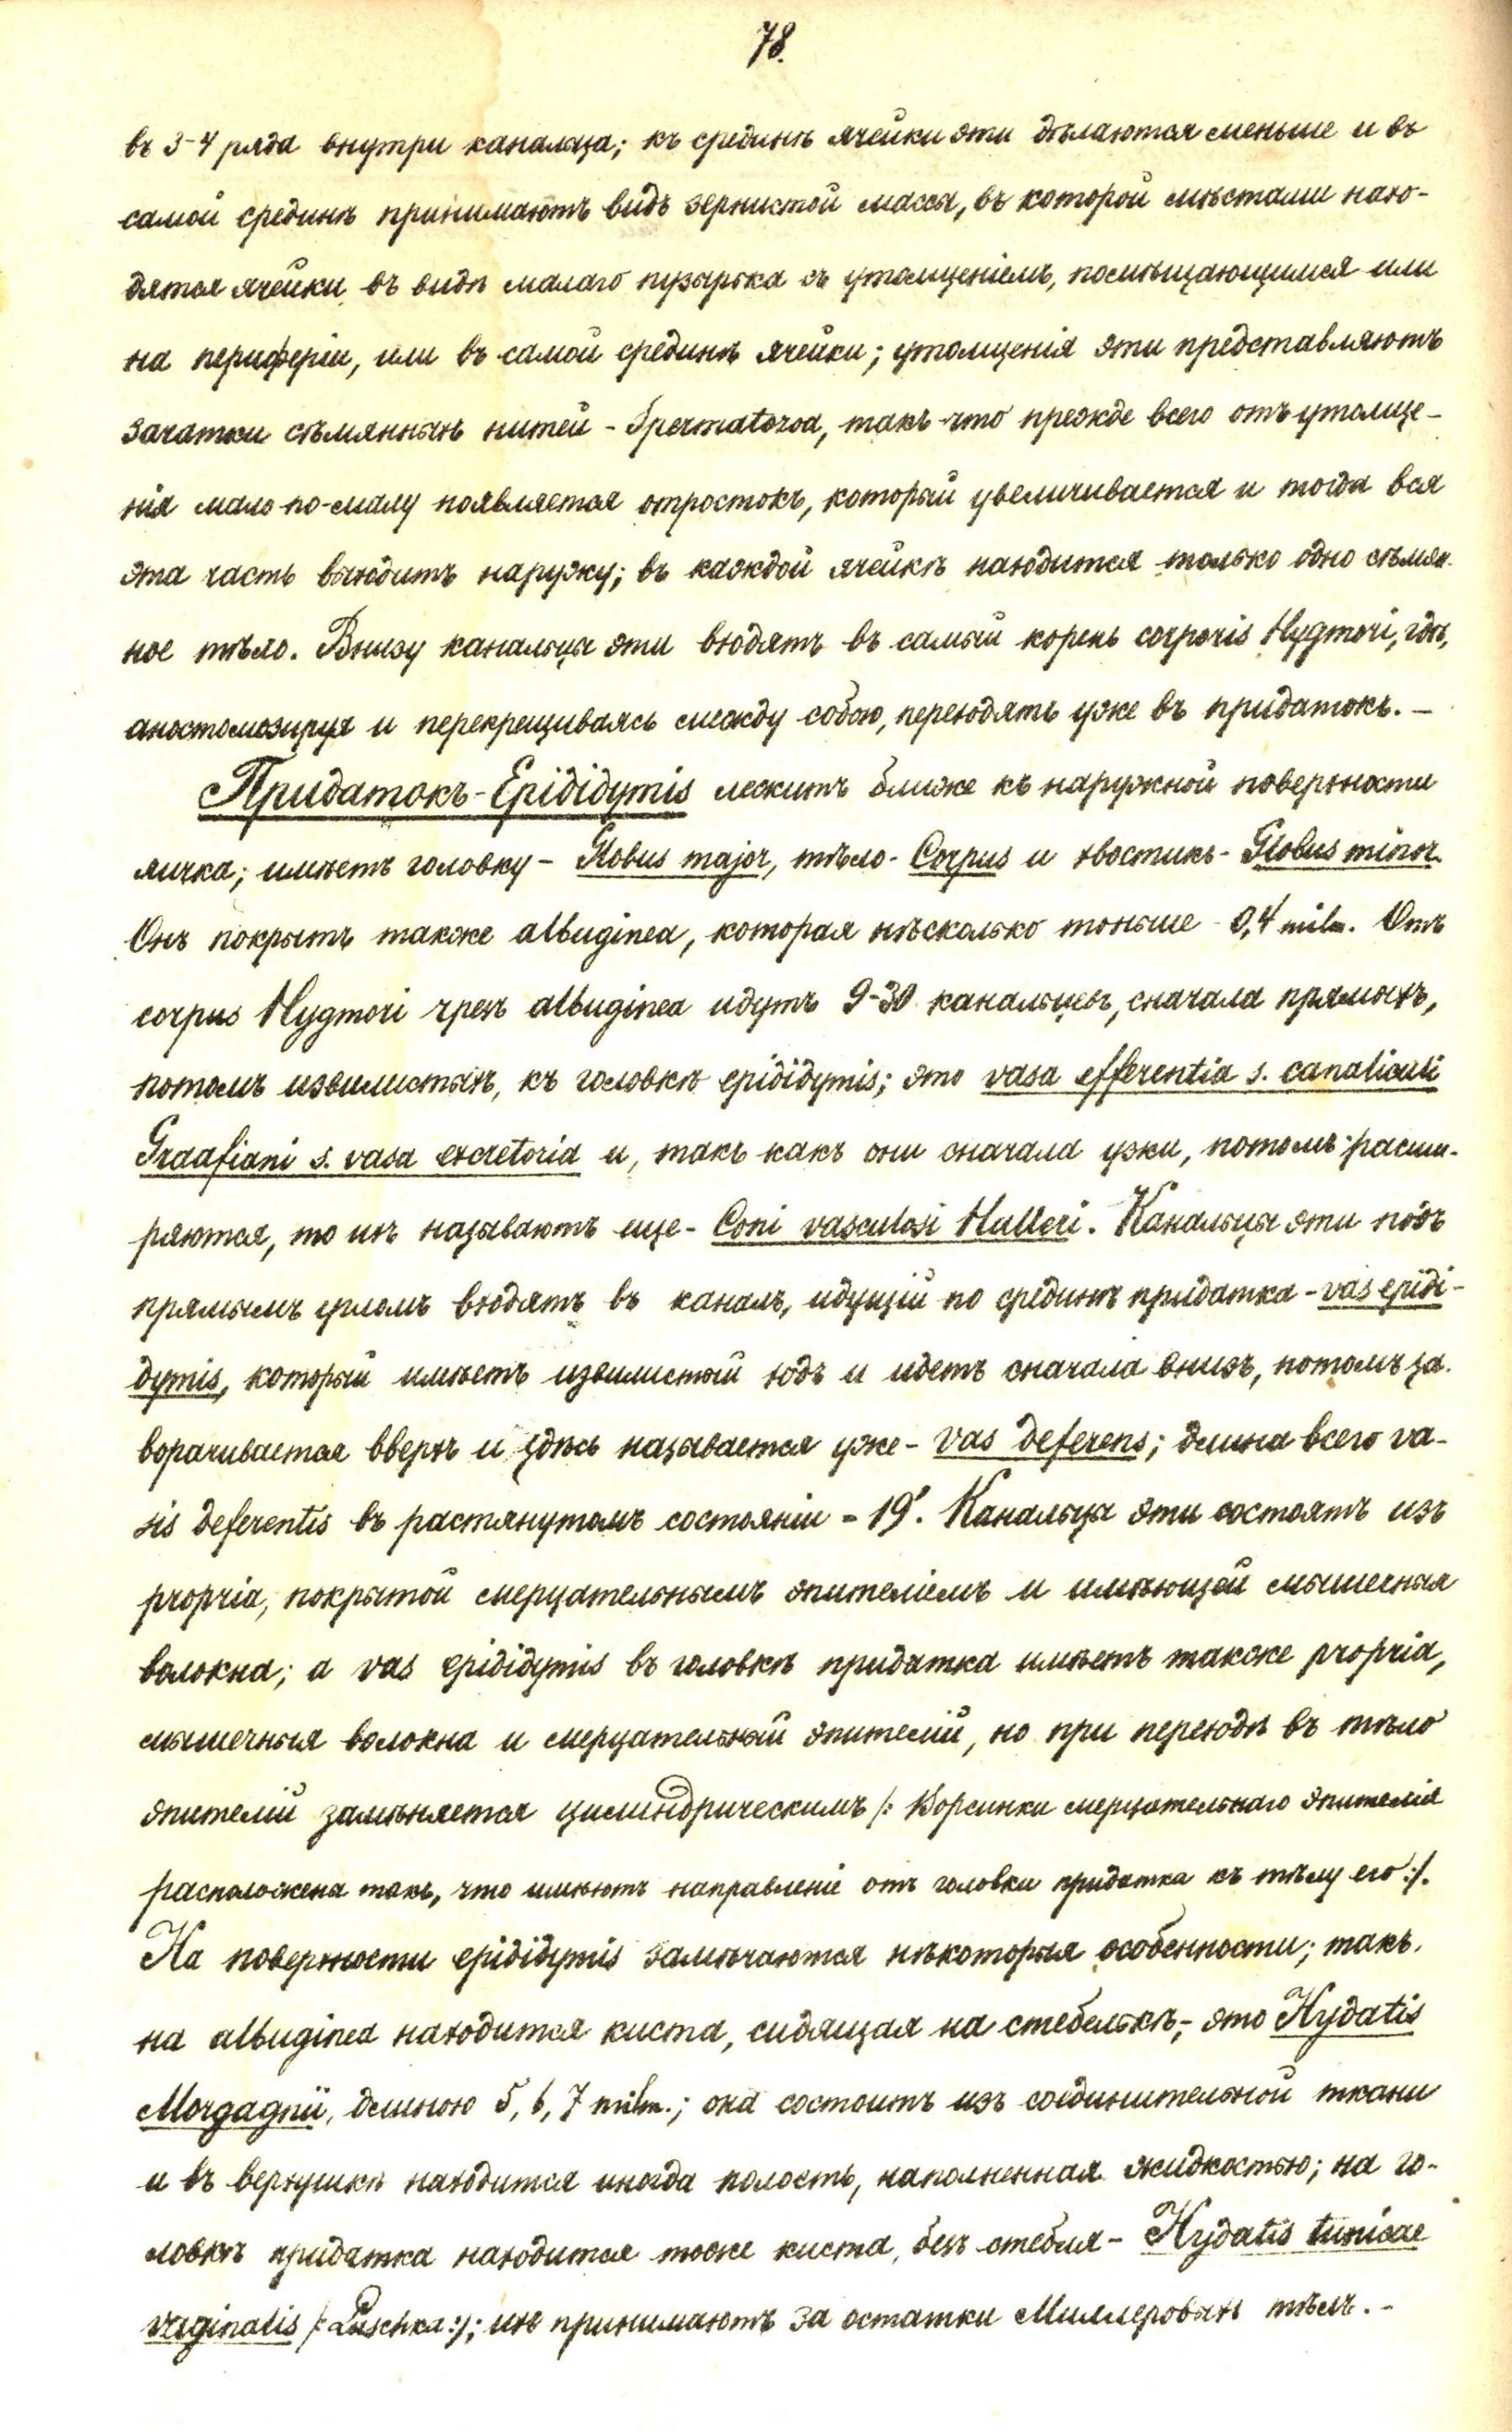 78.
въ 3-4 ряда внутри канальца; къ срединѣ ячейки эти дѣлаются меньше и въ
самой срединѣ принимаютъ видъ зернистой массы, въ которой мѣстами нахо-
дятся ячейки въ видѣ малаго пузырька съ утолщеніемъ, помѣщающимся или
на периферіи, или въ самой срединѣ ячейки; утолщенія эти представляютъ
зачатки сѣмянныхъ нитей - Spermatozoa, такъ что прежде всего отъ утолще-
нія мало-по-малу появляется отростокъ, который увеличивается и тогда вся
эта часть выходитъ наружу; въ каждой ячейкѣ находится только одно сѣмян-
ное тѣло. Внизу канальцы эти входятъ въ самый корень corporis Hygmori, гдѣ,
анастомозируя и перекрещиваясь между собою, переходятъ уже въ придатокъ. —
Придатокъ - Epididymis лежитъ ближе къ наружной поверхности
яичка; имѣетъ головку - Globus major, тѣло - Corpus и хвостикъ - Globus minor.
Онъ покрытъ также albuginea, которая нѣсколько тоньше - 0,4 milm. Отъ
corpus Hygmori чрезъ albuginea идутъ 9-30 канальцевъ, сначала прямыхъ,
потомъ извилистыхъ, къ головкѣ epididymis; это vasa efferentia s. canaliculi
Graafiani s. vasa excretoria и, такъ какъ они сначала узки, потомъ расши-
ряются, то ихъ называютъ еще - Coni vasculosi Halleri. Канальцы эти подъ
прямымъ угломъ входятъ въ каналъ, идущій по срединѣ придатка - vas epidi-
dymis, который имѣетъ извилистый ходъ и идетъ сначала внизъ, потомъ за-
ворачивается вверхъ и здѣсь называется уже - vas deferens; длина всего va-
sis deferentis въ растянутомъ состояніи = 19'. Канальцы эти состоятъ изъ
propria, покрытой мерцательнымъ эпителіемъ и имѣющей мышечныя
волокна; а vas epididymis въ головкѣ придатка имѣетъ также propria,
мышечныя волокна и мерцательный эпителій, но при переходѣ въ тѣло
эпителій замѣняется цилиндрическимъ /: Ворсинки мерцательнаго эпителія
расположена такъ, что имѣютъ направленіе отъ головки придатка къ тѣлу его :/.
На поверхности epididymis замѣчаются нѣкоторыя особенности; такъ,
на albuginea находится киста, сидящая на стебелькѣ, - это Hydatis
Morgagnii, длиною 5, 6, 7 milm.; она состоитъ изъ соединительной ткани
и въ верхушкѣ находится иногда полость, наполненная жидкостью; на го-
ловкѣ придатка находится тоже киста, безъ стебля - Hydatis tunicae
vaginalis /: Luschka :/; ихъ принимаютъ за остатки Миллеровыхъ тѣлъ. -